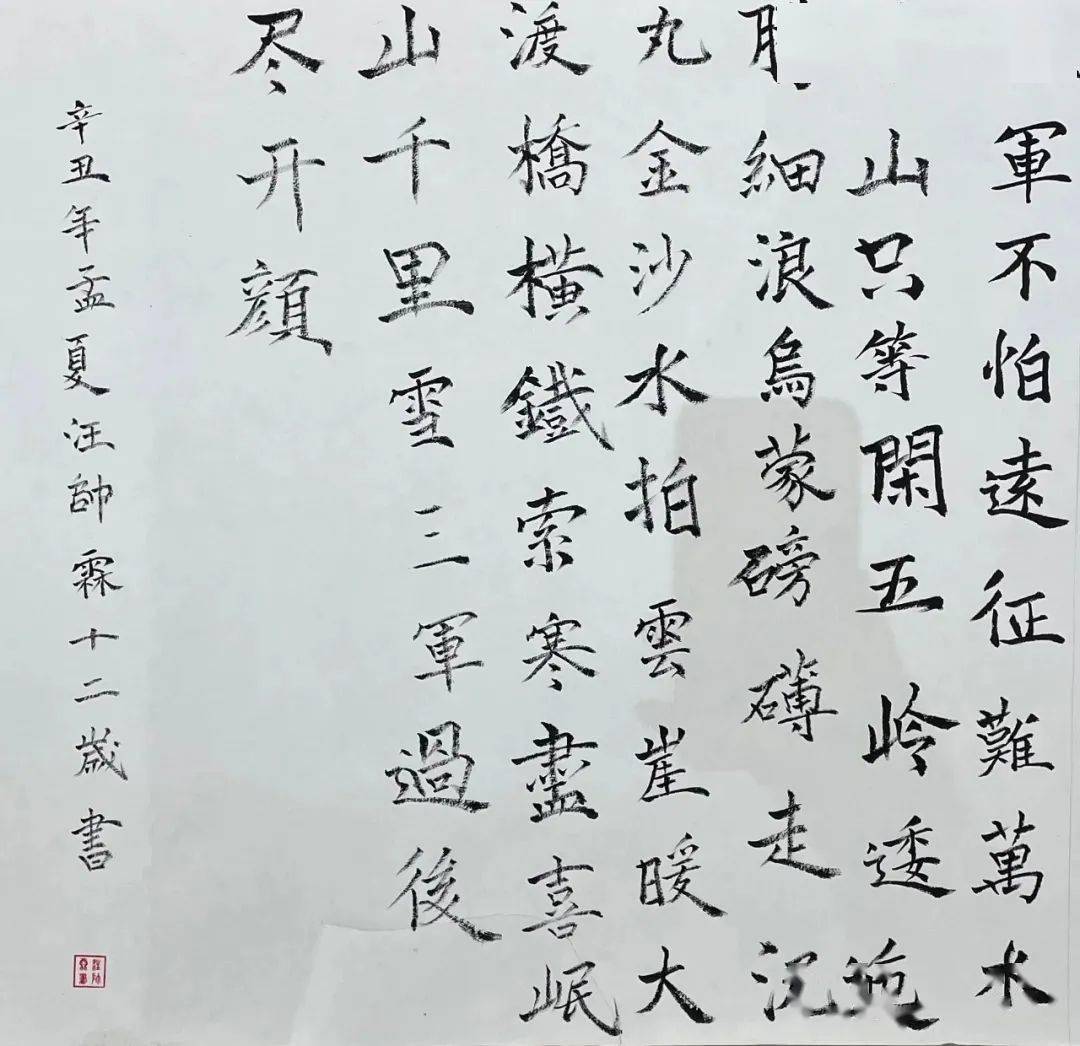 軍不怕遠征難萬水
山只等閑五岭逶迤
細浪烏蒙磅礴走
丸金沙水拍雲崖暖大
渡橋橫鐵索寒盡喜岷
山千里雪三軍過後
尽开顏
辛丑年孟夏汪帥霖十二歲書